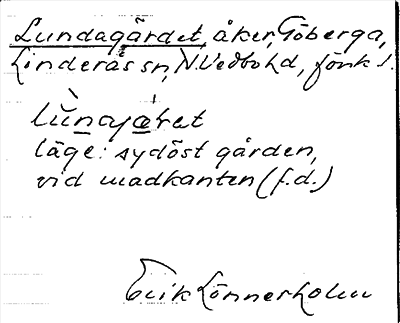 Lundagärdet, åker, Göberga,
Linderås sn, N.Vedbo hd, Jönk. l.
lùnajæ̀ret
läge: sydöst gården,
vid madkanten (f.d.)
Erik Lönnerholm